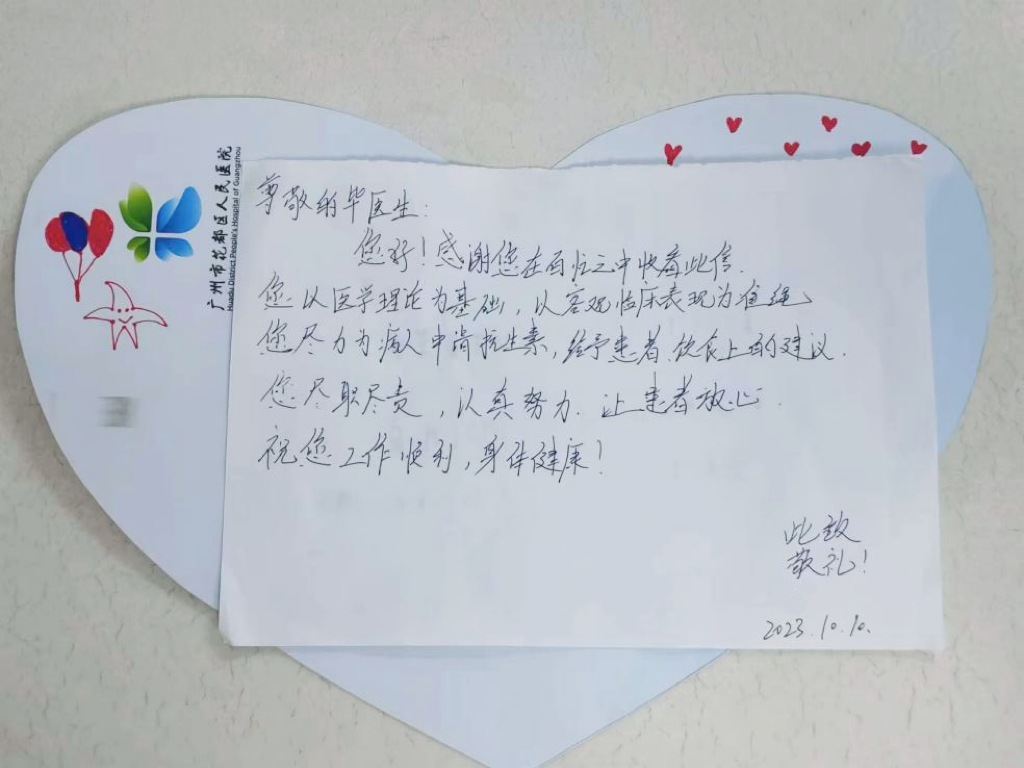 广州市花都区人民医院
Huadu District People's Hospital of Guangzhou
尊敬的毕医生：
您好！感谢您在百忙之中收看此信.
您以医学理论为基础，以客观临床表现为准绳
您尽力为病人申请抗生素，给予患者饮食上的建议.
您尽职尽责，认真努力.让患者放心.
祝您工作顺利，身体健康！
此致
敬礼！
2023.10.10.